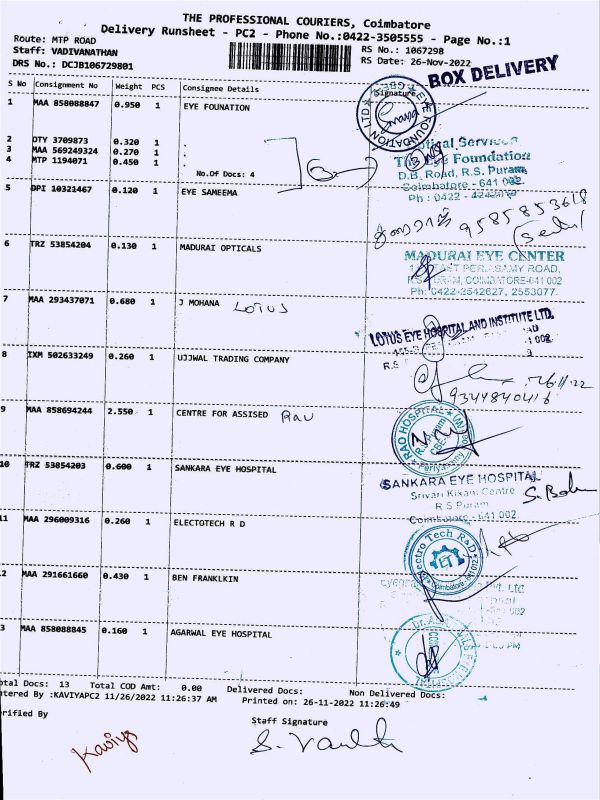 THE PROFESSIONAL COURIERS, Coimbatore
Delivery Runsheet - PC2 - Phone No.:0422-3505555 - Page No.:1
Route: MTP ROAD
RS No.: 1067298
Staff: VADIVANATHAN
RS Date: 26-Nov-2022
DRS No.: DCJB106729801
BOX DELIVERY
S No Consignment No Weight PCS Consignee Details Signature
1 MAA 858088847 0.950 1 EYE FOUNATION
2 DTY 3709873 0.320 1 .
3 MAA 569249324 0.270 1 .
4 MTP 1194071 0.450 1 .
No.Of Docs: 4
Optical Services
The Eye Foundation
D.B. Road, R.S. Puram,
Coimbatore - 641 002
Ph : 0422 -
5 DPI 10321467 0.120 1 EYE SAMEEMA
9585853618
6 TRZ 53854204 0.130 1 MADURAI OPTICALS
MADURAI EYE CENTER
EAST PERIASAMY ROAD,
R.S. PURAM, COIMBATORE-641 002
Ph: 0422-2542627, 2553077.
7 MAA 293437071 0.680 1 J MOHANA LOTUS
LOTUS EYE HOSPITAL AND INSTITUTE LTD.
8 IXM 502633249 0.260 1 UJJWAL TRADING COMPANY
26/11/22
9344840416
9 MAA 858694244 2.550 1 CENTRE FOR ASSISED Rau
RAO HOSPITAL
R.S. Puram
CBE-
10 TRZ 53854203 0.600 1 SANKARA EYE HOSPITAL
SANKARA EYE HOSPITAL
Srivari Kikani Centre
R S Puram
Coimbatore - 641 002
11 MAA 296009316 0.260 1 ELECTOTECH R D
Electro Tech R&D
ET
Coimbatore
2 MAA 291661660 0.430 1 BEN FRANKLKIN
3 MAA 858088845 0.160 1 AGARWAL EYE HOSPITAL
otal Docs: 13 Total COD Amt: 0.00 Delivered Docs: Non Delivered Docs:
ntered By :KAVIYAPC2 11/26/2022 11:26:37 AM Printed on: 26-11-2022 11:26:49
erified By
Staff Signature
Kaviya